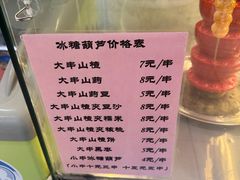 冰糖葫芦价格表
大串山楂 7元/串
大串山药 8元/串
大串山药豆 5元/串
大串山楂夹豆沙 8元/串
大串山楂夹糯米 8元/串
大串山楂夹核桃 8元/串
大串山楂饼 7元/串
大串黑枣 5元/串
小串冰糖葫芦 4元/串
(小串十元三串 十元三串)